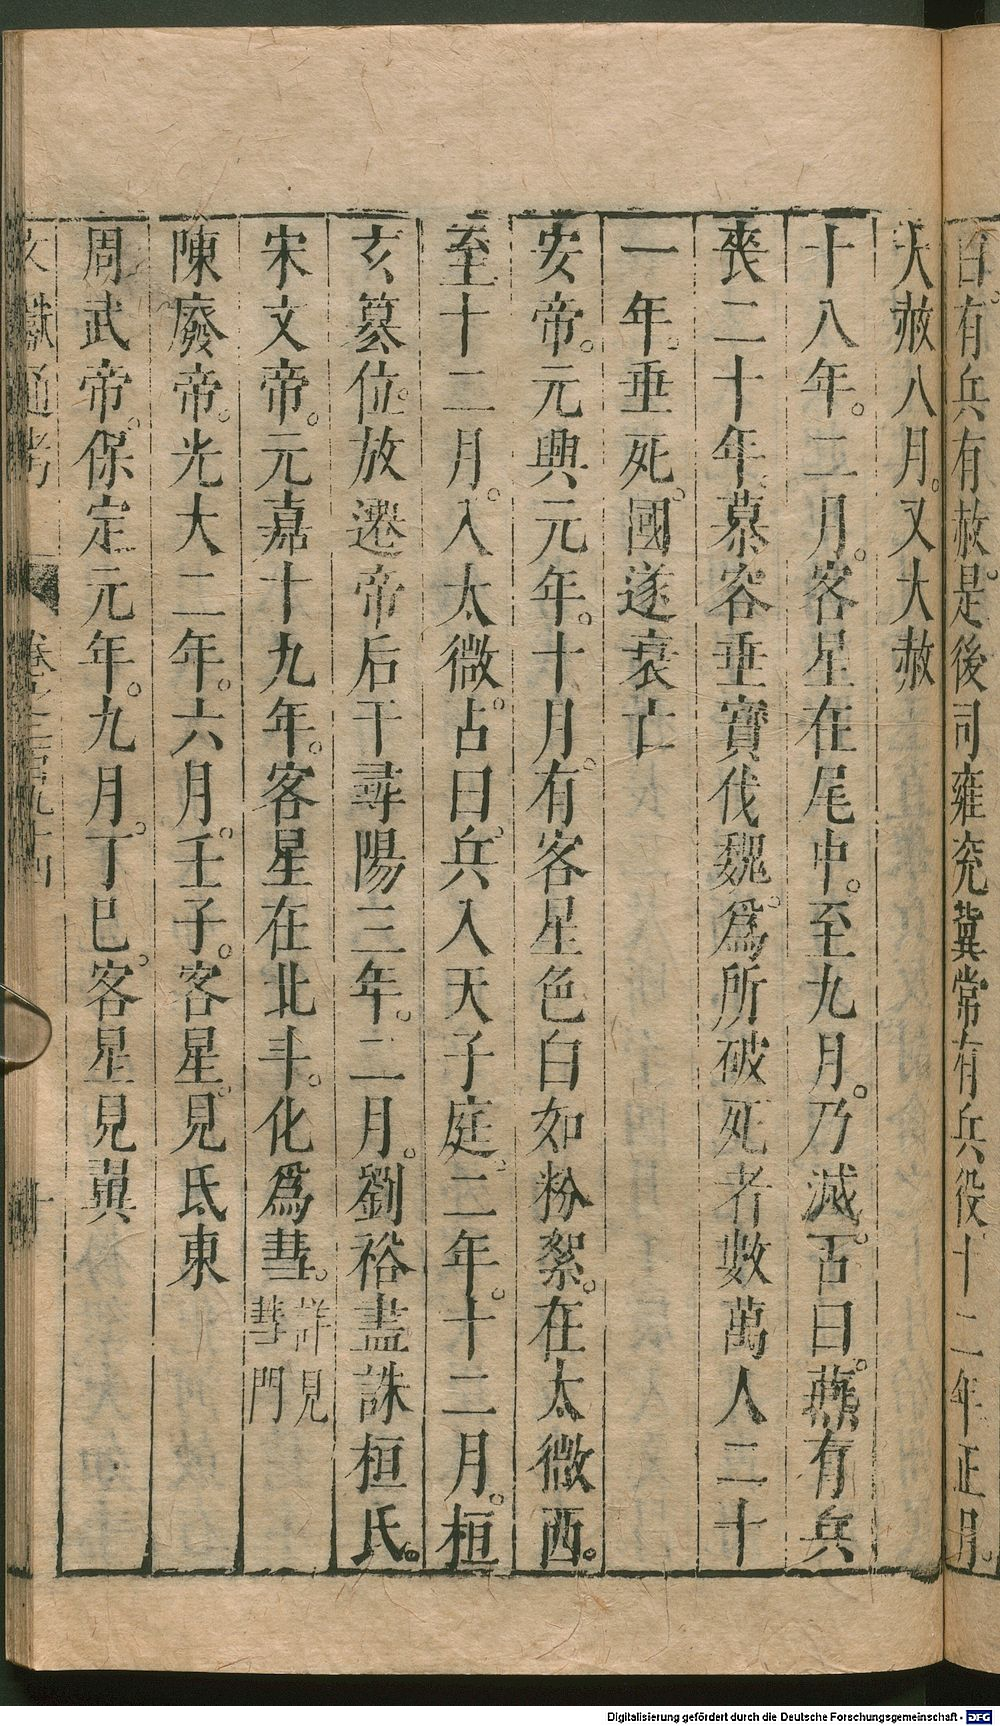 白有兵有赦。是後司雍兖冀常有兵役。十二年正月。
大赦八月。又大赦
十八年。二月。客星在尾中。至九月。乃滅。占曰。燕有兵
喪二十年慕容垂寶伐魏。爲所破死者數萬人二十
一年。垂死。國遂衰亡
安帝。元興元年。十月。有客星色白如粉絮。在太微西。
至十二月。入太微。占曰。兵入天子庭。二年。十二月。桓
玄篡位。放遷帝后于尋陽三年。二月。劉裕盡誅桓氏。
宋文帝。元嘉十九年。客星在北斗。化爲彗。詳見彗門
陳廢帝。光大二年。六月。壬子。客星。見氐東
周武帝。保定元年。九月。丁巳。客星見翼
文獻通考 卷之二百九十四 十
Digitalisierung gefördert durch die Deutsche Forschungsgemeinschaft - DFG